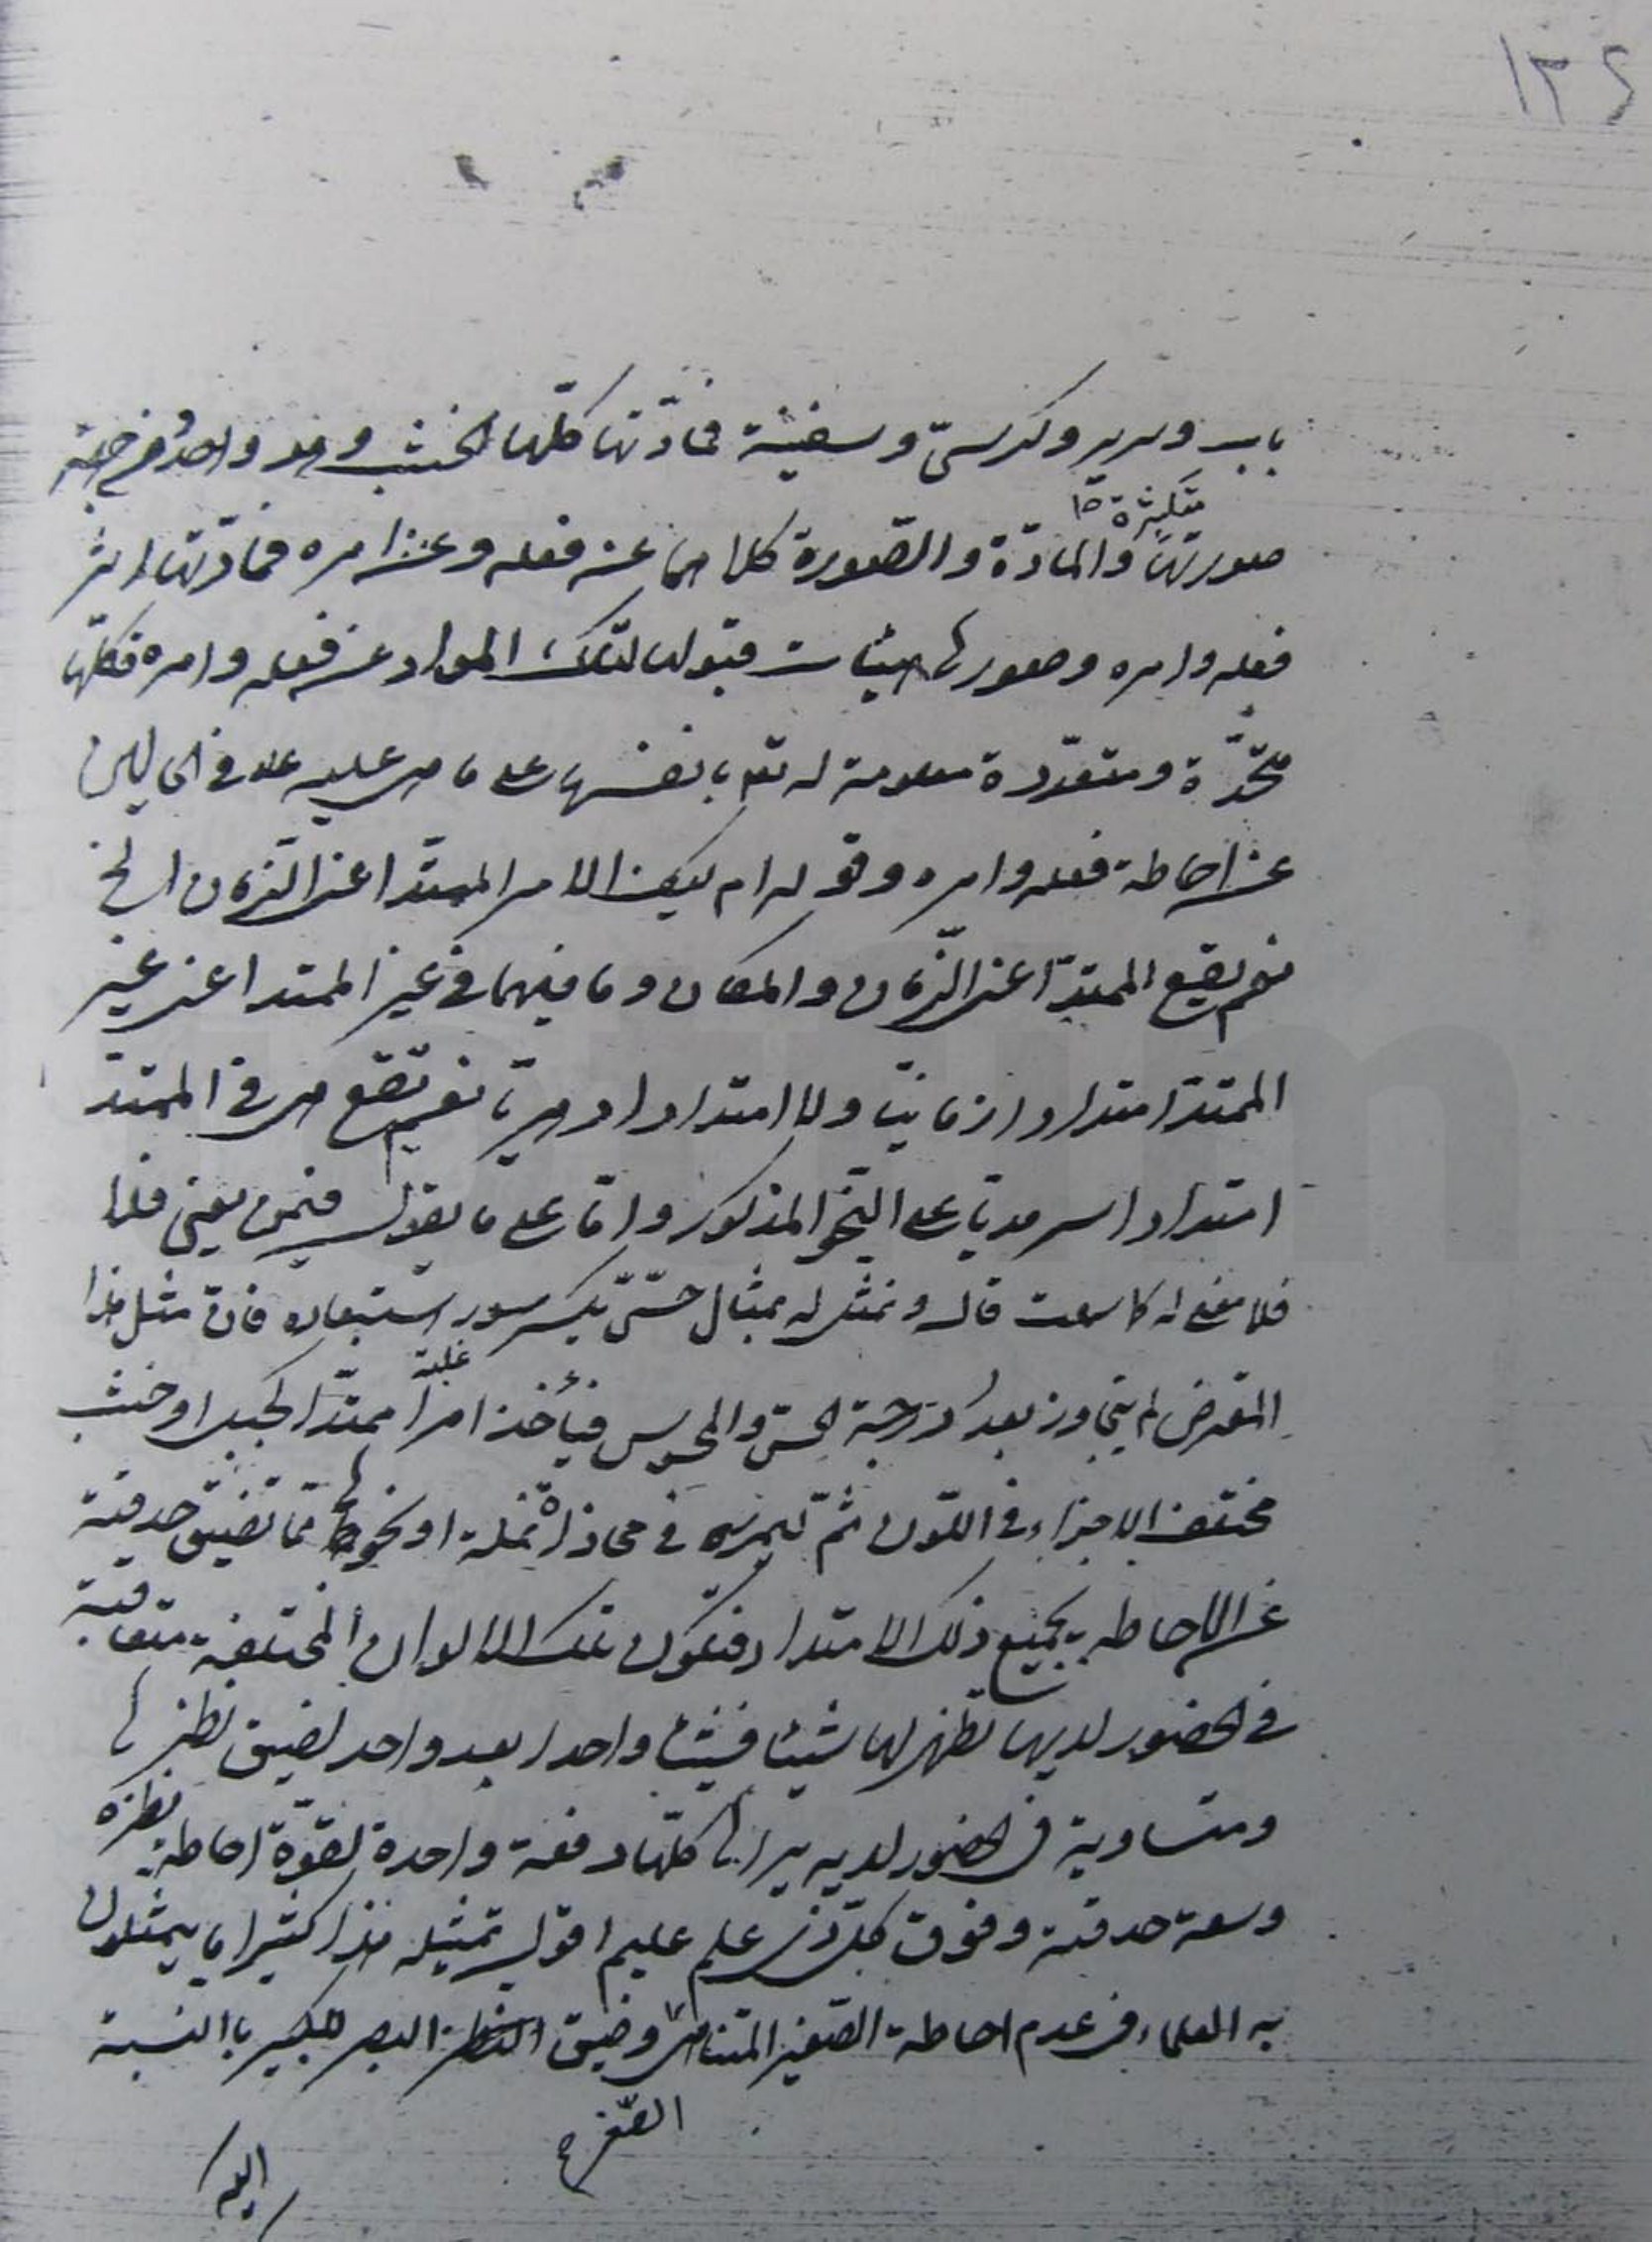 ١٣٤
باب وسرير وكرسيّ وسفينة فمادّتها كلّها الخشب وهو واحد ومن جهة
متكثرة صح
صورتها والمادّة والصّورة كلاهما عن فعله وعن امره فمادّتها اثر
فعله وامره وصورها هيئات قبولها لتلك المواد عن فعله وامره فكلّها
متّحدة ومتعدّدة معلومة له تع بانفسها على ما هي عليه علا في الحالين
عن احاطة فعله وامره وقوله ام ليت الامر الممتدّ اعني الزّمان الخ
نعم يقع الممتدّ اعني الزّمان والمكان وما فيهما في غير الممتد اعني غير
الممتدّ امتدادا زمانيّا ولا امتدادا دهريّا نعم تقع هي في الممتدّ
امتدادا سرمديّا على النّحو المذكور وامّا على ما يقول فمن يعني هذا
فلا معنى له كما سمعت قال ونمثّل له بمثال حسّيّ يكسر سورة استبعاده فان مثل هذا
المعترض لم يتجاوز بعد درجة الحسّ والمحسوس فيأخذ امرا ممتدّا كحبل او خشب
غلبة
مختلف الاجزاء في اللّون ثمّ ليمرره في محاذاة نملة او نحوها ممّا تضيق حدقته
عن الاحاطة بجميع ذلك الامتداد فتكون تلك الالوان المختلفة متعاقبة
في الحضور لديها تظهر لها شيئا فشيئا واحدا بعد واحد لضيق نظرها
ومتساوية في الحضور لديه يراها كلّها دفعة واحدة لقوّة احاطة نظره
وسعة حدقته وفوق كلّ ذي علم عليم اقول تمثيله هذا كثيرا ما يمثلون
به العلماء في عدم احاطة الصّغير المتناهي وضيق النظر البصر للكبير بالنسبة
الصّغر ح
اليه